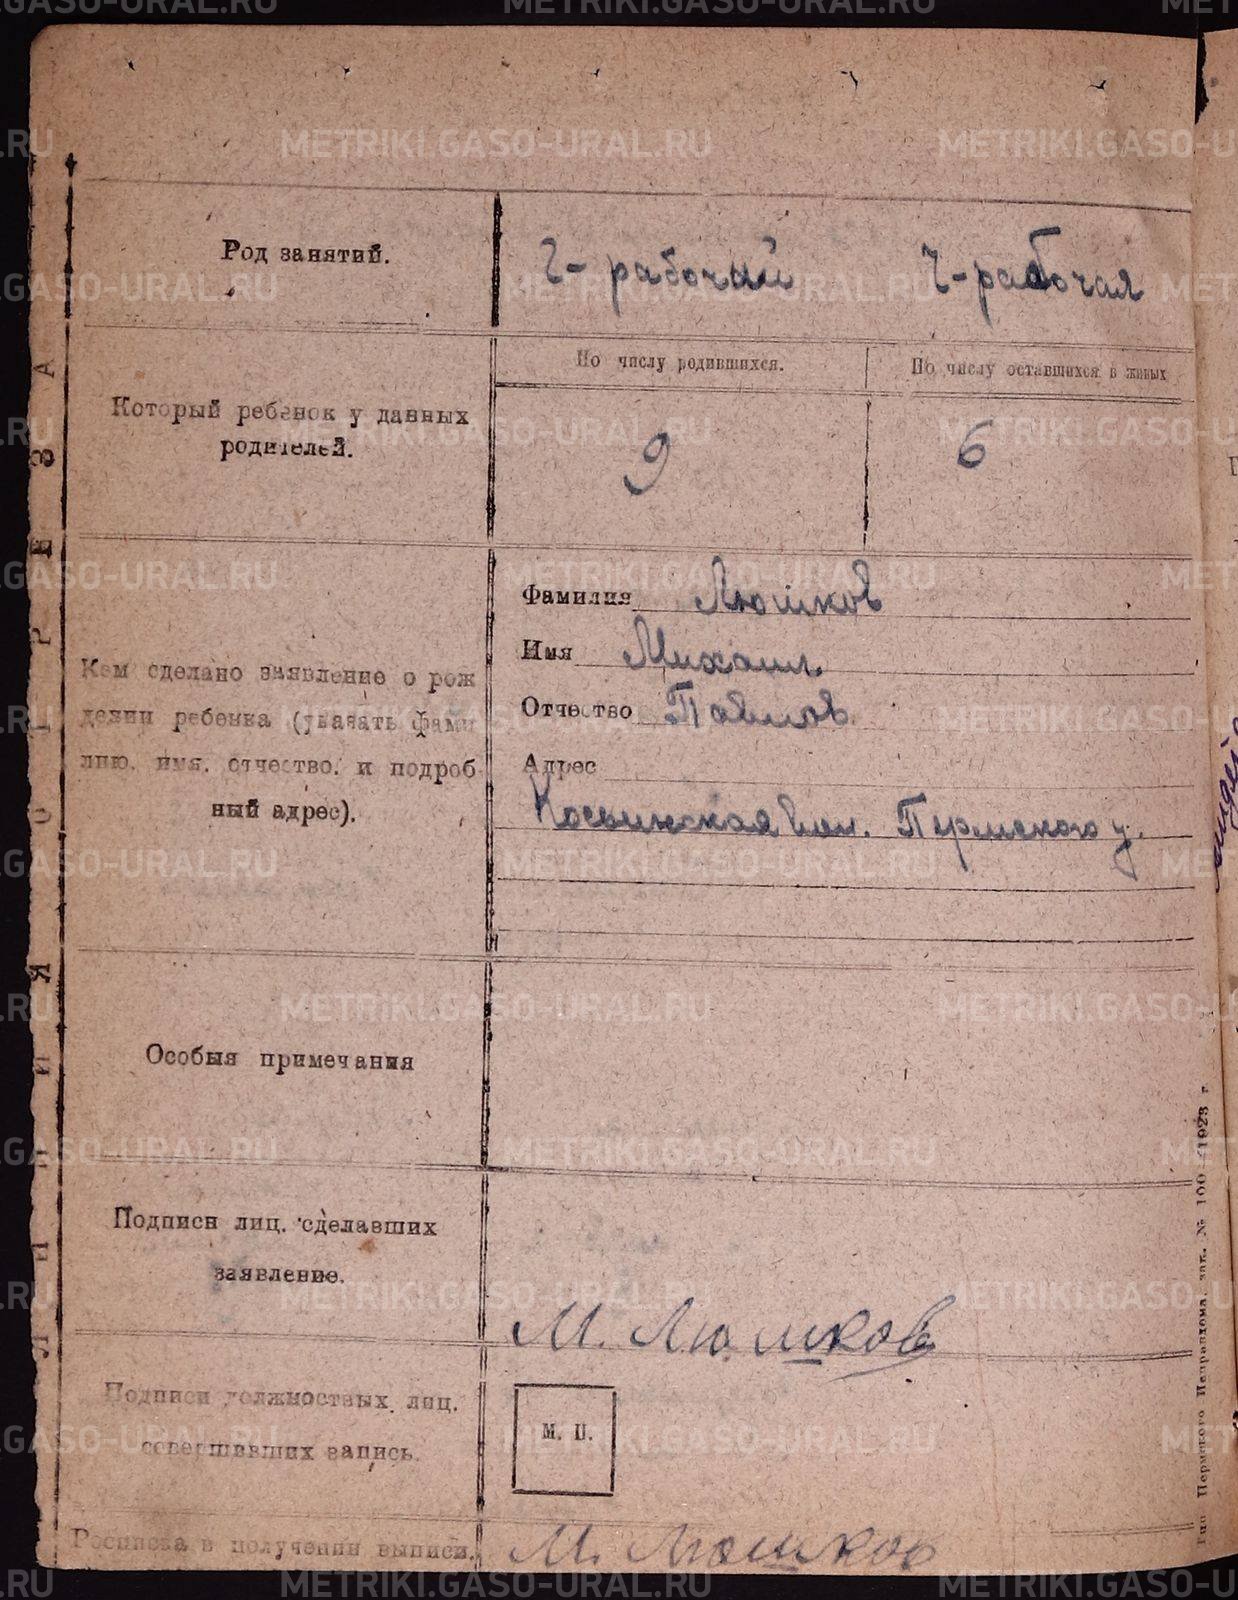 Род занятий.
Ч-рабочий Ч-рабочая
Который ребенок у данных
родителей.
По числу родившихся. По числу оставшихся в живых
9 6
Кем сделано заявление о рож
дении ребенка (указать фами
лию, имя, отчество, и подроб
ный адрес).
Фамилия Люшков
Имя Михаил
Отчество Павлов.
Адрес
Пермского у.
Особыя примечания
Подписи лиц, сделавших
заявление.
М. Люшков
Подписи должностных лиц,
совершивших запись.
М. П.
Росписка в получении выписи.
М. Люшков
ЛИНИЯ ОТРЕЗА
Тип Пермского Исправдома, зак. № 100 -1923 г.
METRIKI.GASO-URAL.RU